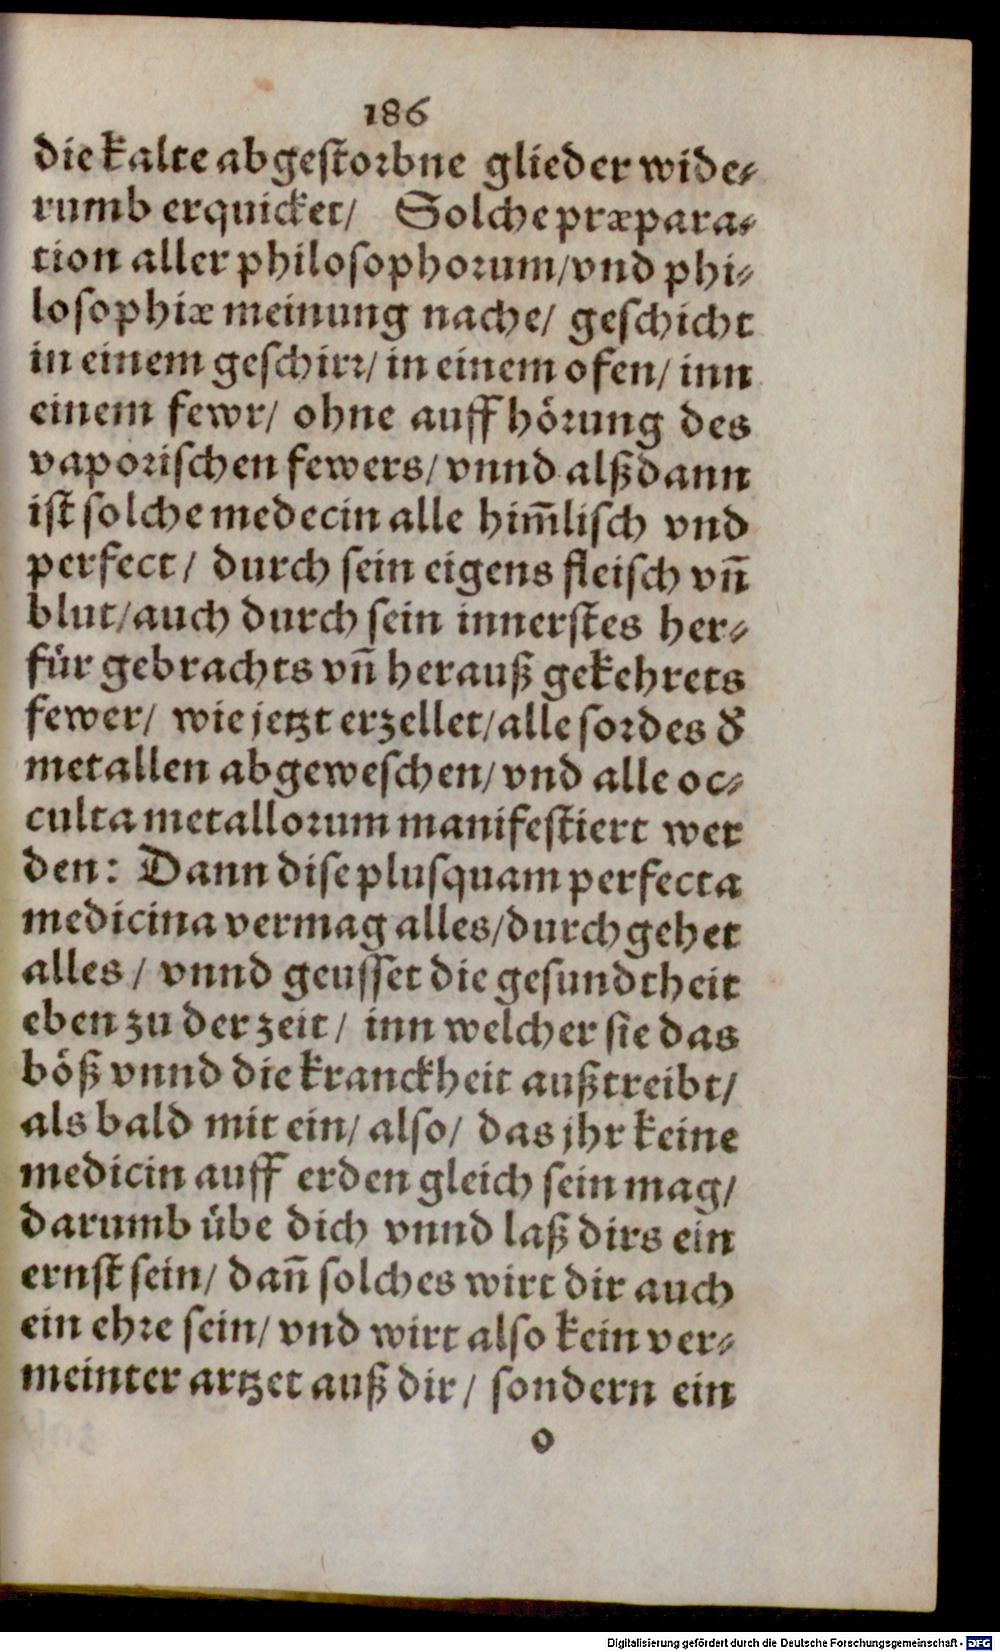 186
die kalte abgestorbne glieder wide⸗
rumb erquicket/ Solche præpara⸗
tion aller philosophorum/vnd phi⸗
losophiæ meinung nache/ geschicht
in einem geschirr/ in einem ofen/ inn
einem fewr/ ohne auffhörung des
vaporischen fewers/ vnnd alßdann
ist solche medecin alle him̃lisch vnd
perfect/ durch sein eigens fleisch vñ
blut/auch durch sein innerstes her⸗
für gebrachts vñ herauß gekehrets
fewer/ wie jetzt erzellet/alle sordes d̕
metallen abgeweschen/ vnd alle oc⸗
culta metallorum manifestiert wer
den: Dann dise plusquam perfecta
medicina vermag alles/durchgehet
alles/ vnnd geusset die gesundtheit
eben zu der zeit/ inn welcher sie das
böß vnnd die kranckheit außtreibt/
als bald mit ein/ also/ das jhr keine
medicin auff erden gleich sein mag/
darumb übe dich vnnd laß dirs ein
ernst sein/ dañ solches wirt dir auch
ein ehre sein/ vnd wirt also kein ver⸗
meinter artzet auß dir/ sondern ein
o
Digitalisierung gefördert durch die Deutsche Forschungsgemeinschaft - DFG